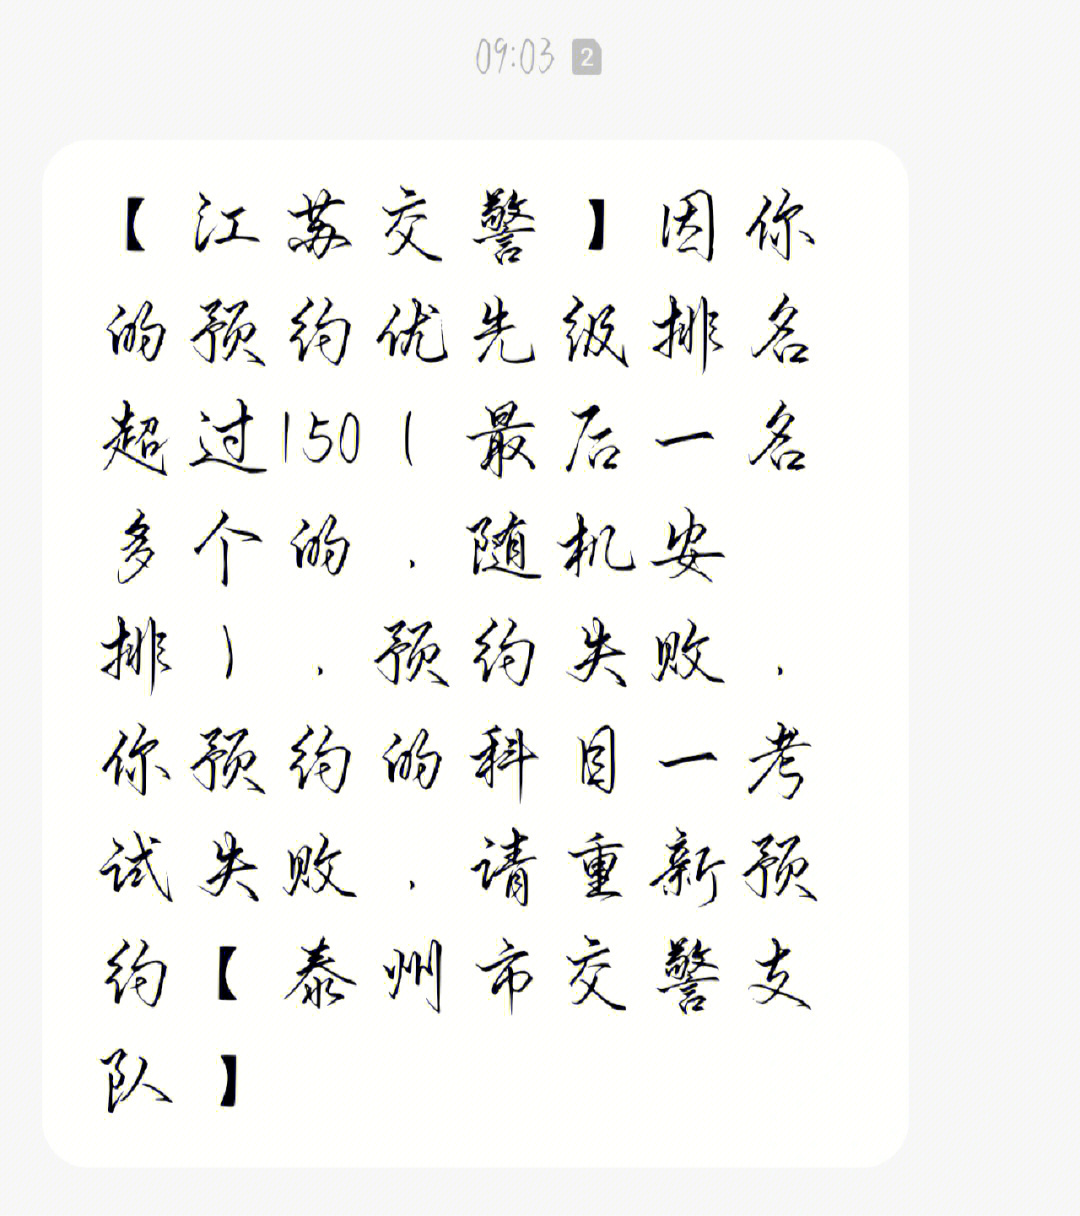 09:03 2
【江苏交警】因你
的预约优先级排名
超过150(最后一名
多个的,随机安
排),预约失败,
你预约的科目一考
试失败,请重新预
约【泰州市交警支
队】